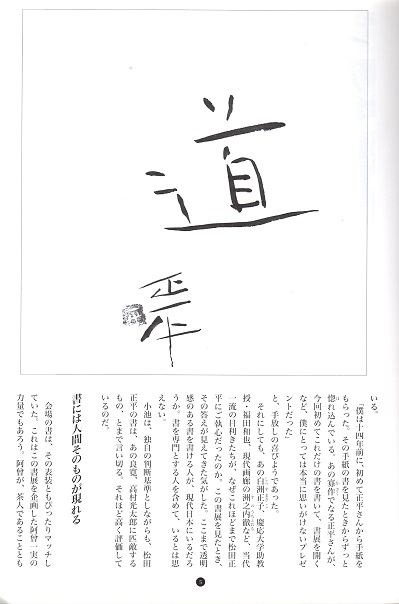 道
正平
いる。
「僕は十四年前に、初めて正平さんから手紙を
もらった。その手紙の書を見たときからずっと
惚れ込んでいる。あの寡作でなる正平さんが、
今回初めてこれだけの書を書いて、書展を開く
など、僕にとっては本当に思いがけないプレゼ
ントだった」
と、手放しの喜びようであった。
それにしても、あの白洲正子、慶応大学助教
授・福田和也、現代画廊の洲之内徹など、当代
一流の目利きたちが、なぜこれほどまで松田正
平にご執心だったのか、この書展を見たとき、
その答えが見えてきた気がした。ここまで透明
感のある書を書ける人が、現代日本にいるだろ
うか。書を専門とする人を含めて、いるとは思
えない。
小池は、独自の判断基準としながらも、松田
正平の書は、あの良寛、高村光太郎に匹敵する
もの、とまで言い切る。それほど高く評価して
いるのだ。
書には人間そのものが現れる
会場の書は、その表装ともぴったりマッチし
ていた。これはこの書展を企画した阿曾一実の
力量でもあろう。阿曾が、茶人であることとも
5